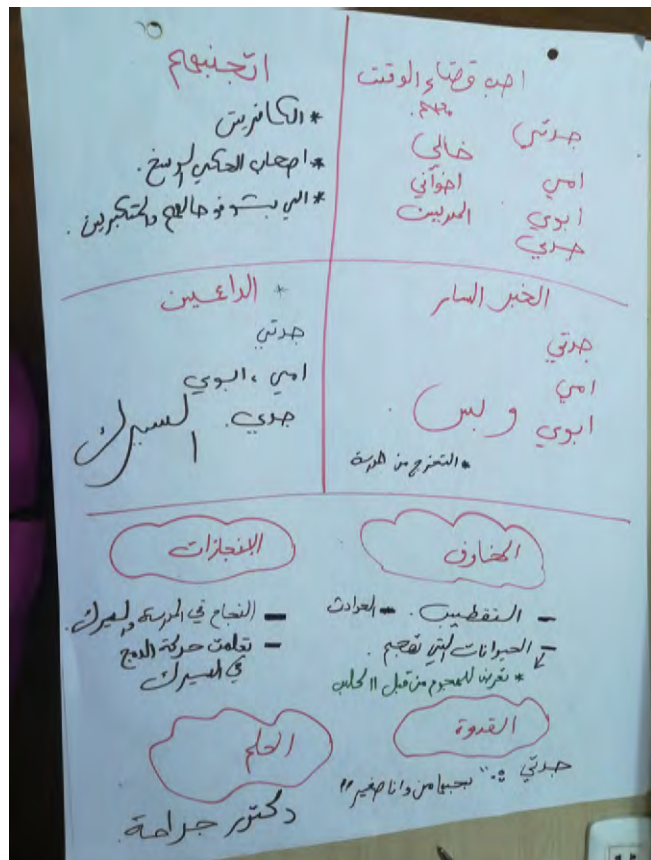 احب قضاء الوقت
معهم.
جدتي
خالي
امي
اخواني
ابوي
المدربين
جدي
اتجنبهم
* الكافريت
* اصحاب الحكي الوسخ.
* الي بشوفو حالهم والمتكبرين.
الخبر السار
جدتي
امي
ابوي
وبس.
* التخرج من المدرسة
* الداعمين
جدتي
امي، ابوي
جدي.
السيرك
المخاوف
- التقطيب. - الحوادث
- الحيوانات التي تهجم.
* تعرضت للهجوم من قبل 11 كلب
الإنجازات
- النجاح في المدرسة والسيرك.
- تعلمت حركة الدمج
في السيرك
القدوة
جدتي: "بحبها من وانا صغير"
الحلم
دكتور جراحة